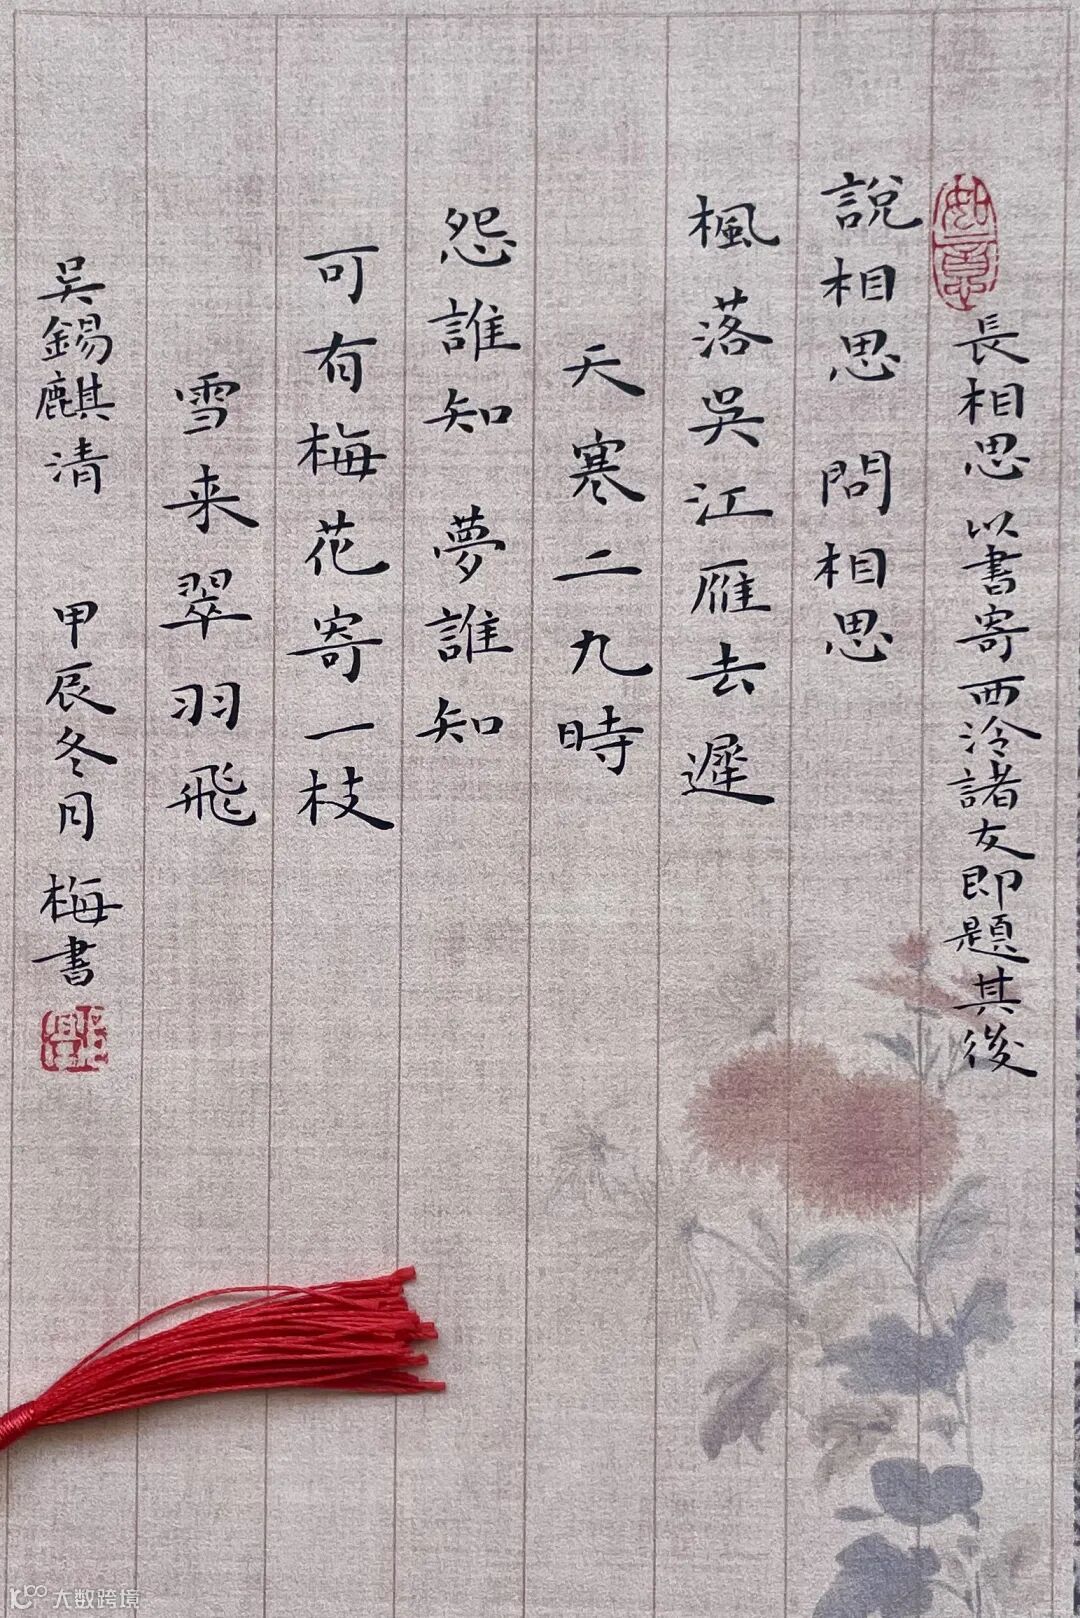 如意
長相思 以書寄西泠諸友即題其後
說相思 問相思
楓落吳江雁去遲
天寒二九時
怨誰知 夢誰知
可有梅花寄一枝
雪来翠羽飛
吳錫麒清 甲辰冬月 梅書
大数跨境